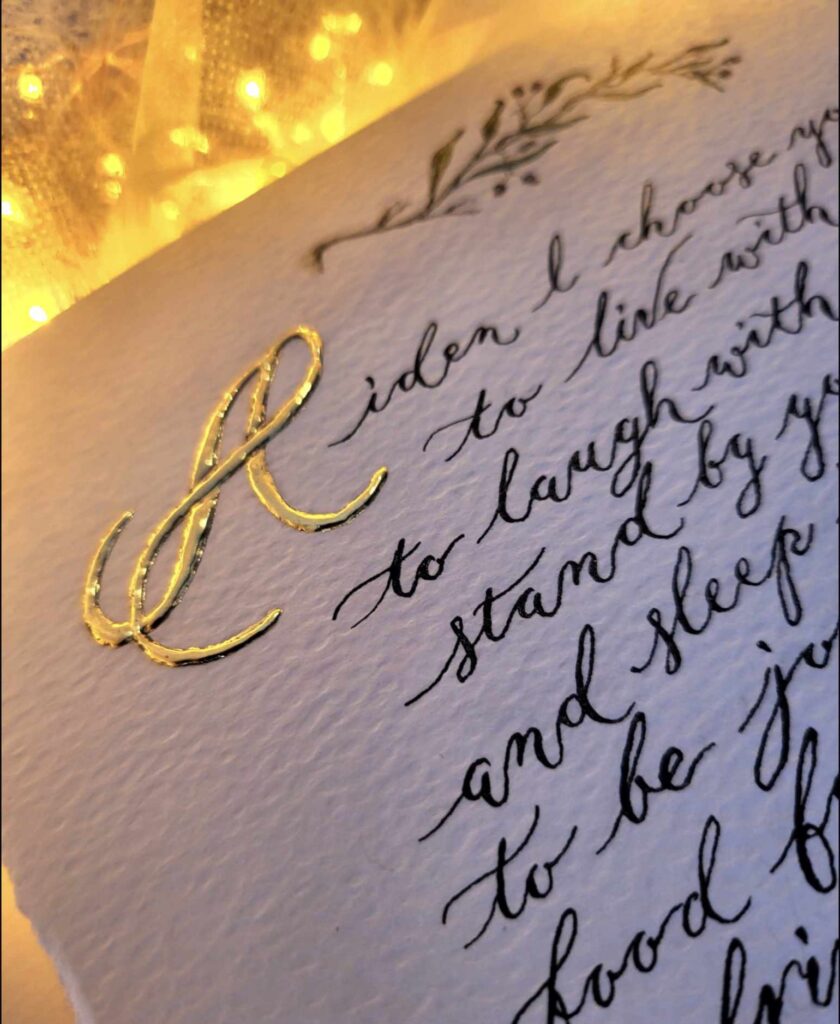 Aiden I choose yo
to live with
to laugh with
stand by yo
and sleep
to be jo
food f